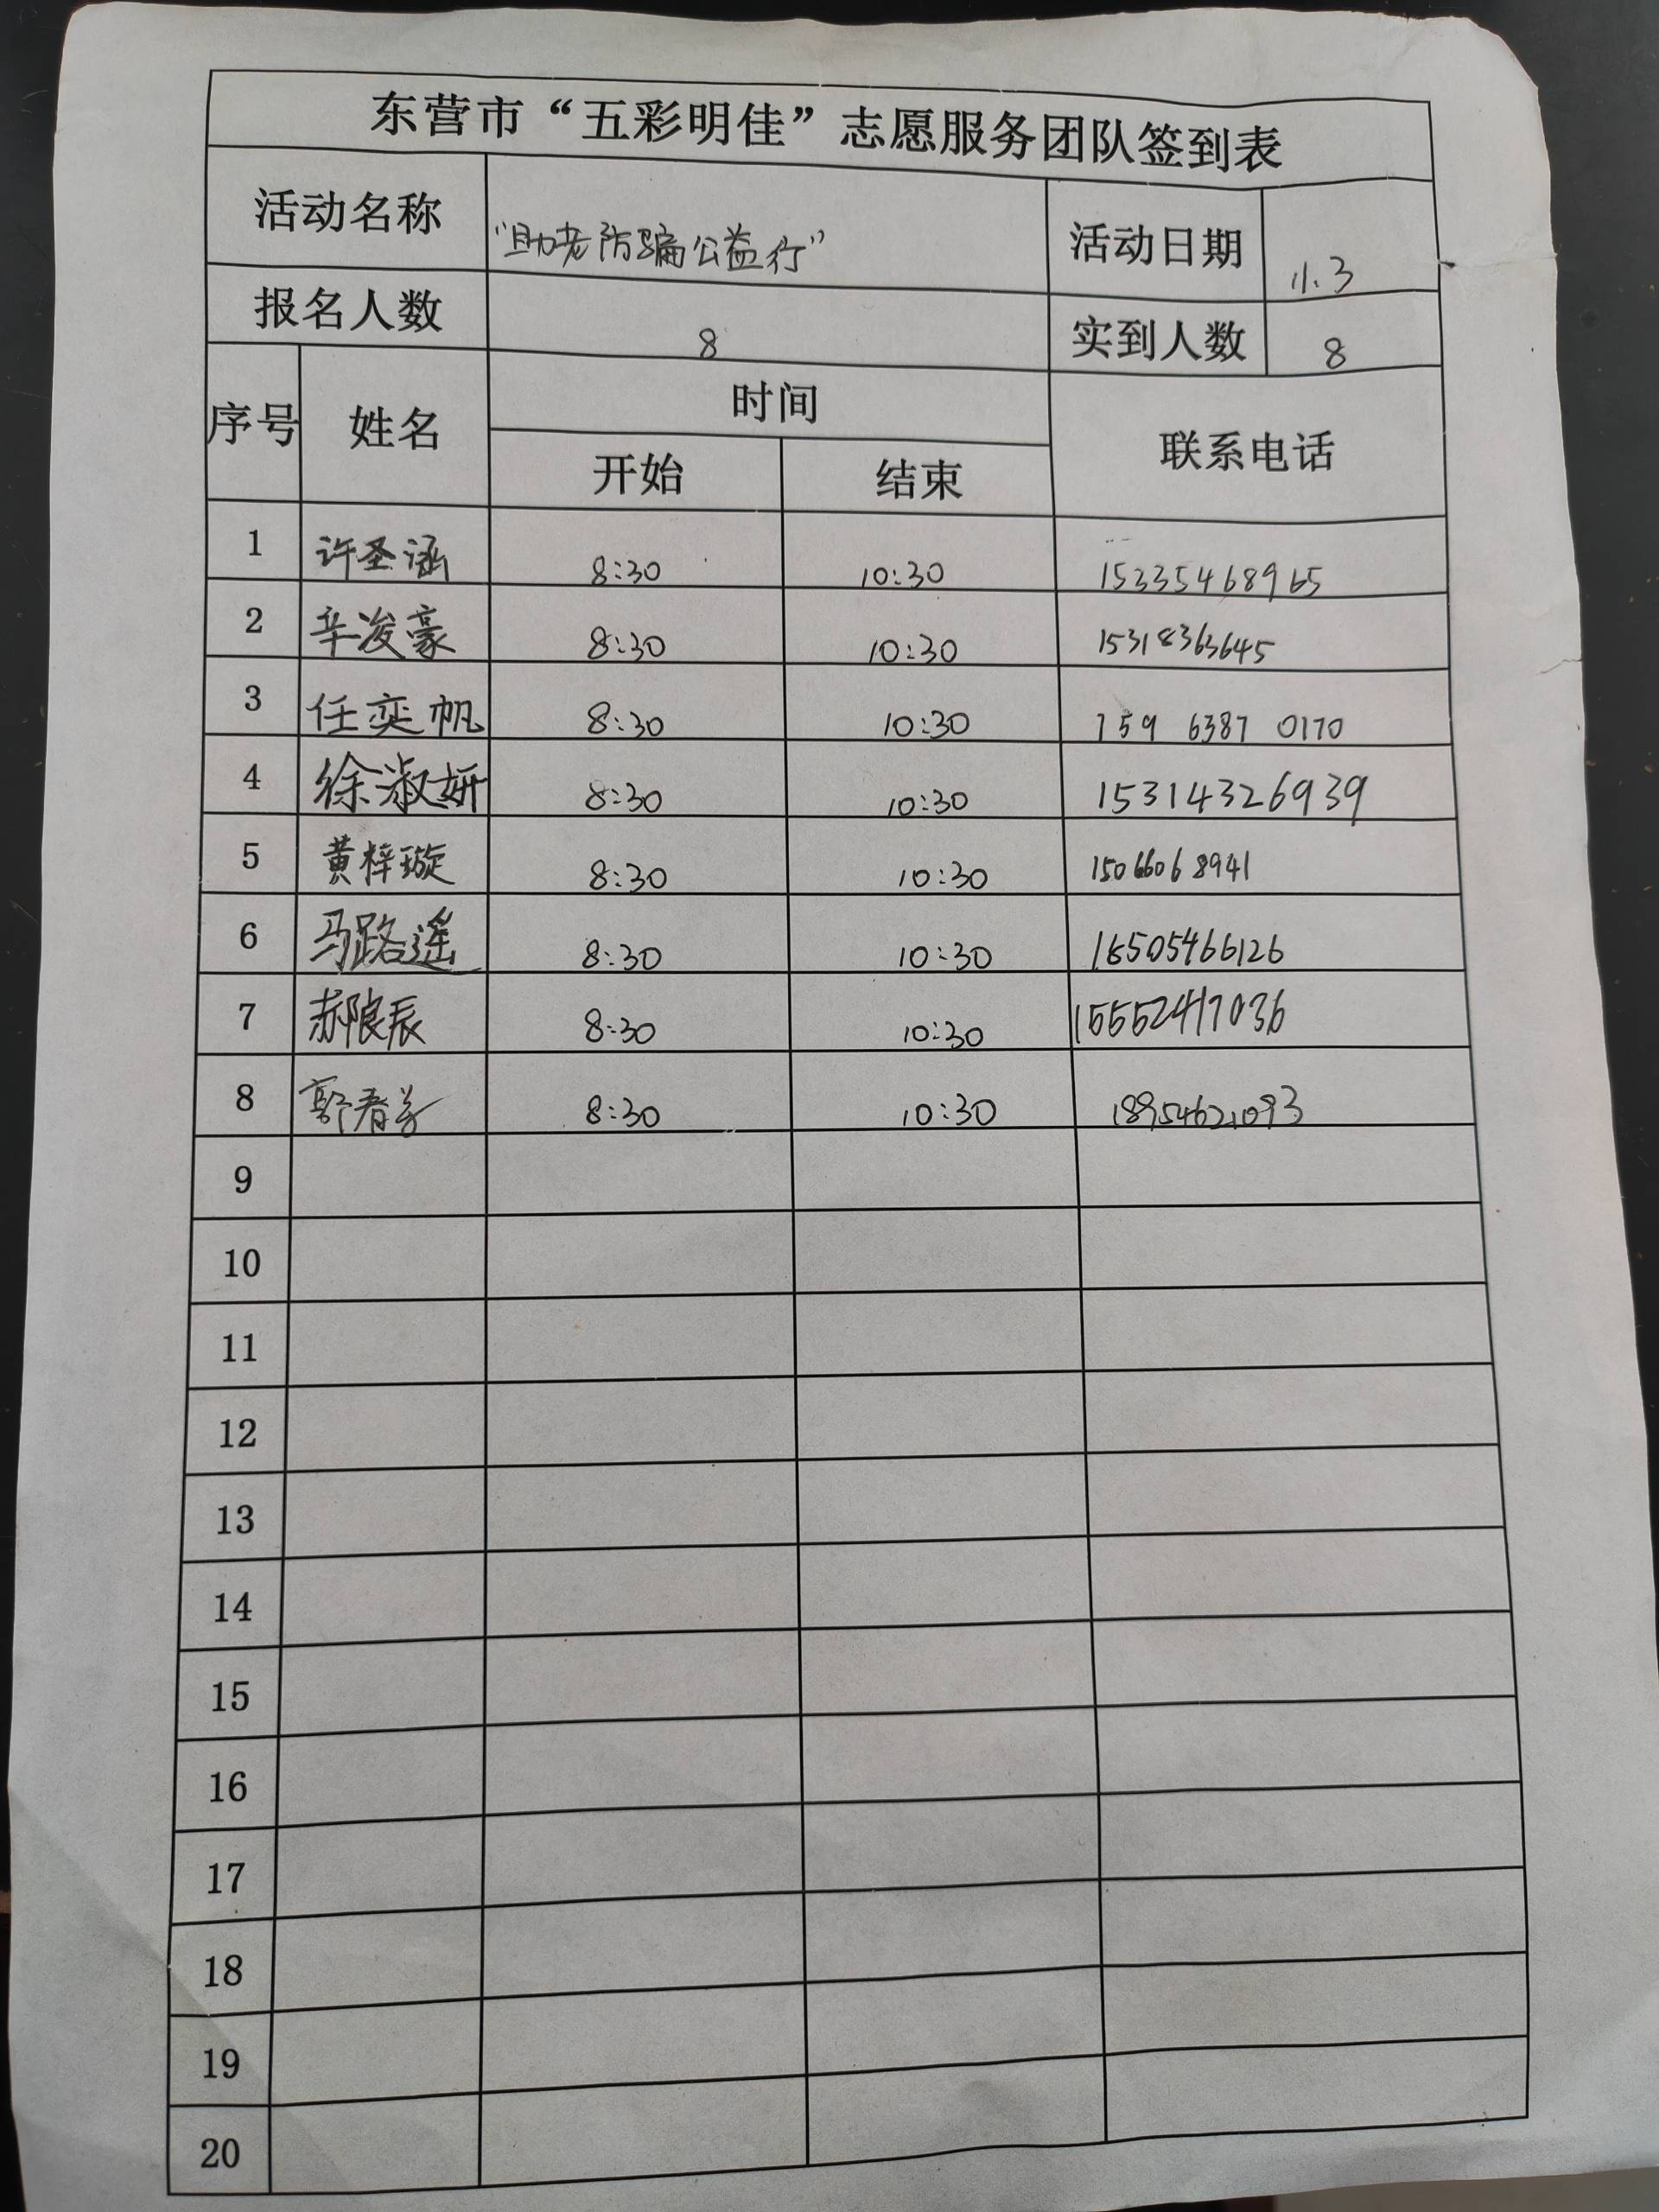 东营市“五彩明佳”志愿服务团队签到表
活动名称 “助老防骗公益行” 活动日期 11.3
报名人数 8 实到人数 8
序号 姓名 时间 联系电话
开始 结束
1 许圣涵 8:30 10:30 15335468965
2 辛浚豪 8:30 10:30 15318363645
3 任奕帆 8:30 10:30 159 6387 0170
4 徐淑妍 8:30 10:30 15314326939
5 黄梓璇 8:30 10:30 15066068941
6 马路遥 8:30 10:30 18505466126
7 郝良辰 8:30 10:30 15552417036
8 郭春芳 8:30 10:30 18954621093
9
10
11
12
13
14
15
16
17
18
19
20